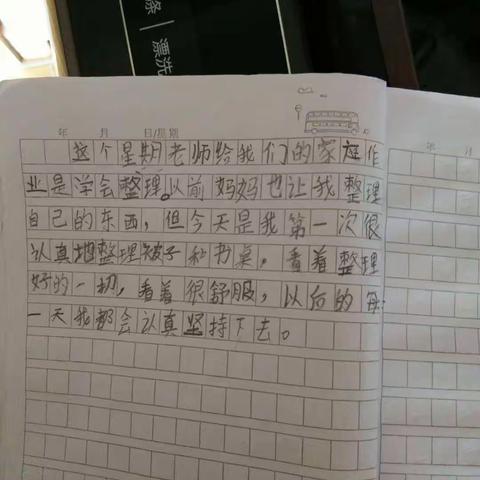 条 | 漂洗
年 月 日/星期
年 月
这个星期老师给我们的家庭作
业是学会整理。以前妈妈也让我整理
自己的东西，但今天是我第一次很
认真地整理被子和书桌，看着整理
好的一切，看着很舒服，以后的每
一天我都会认真坚持下去。